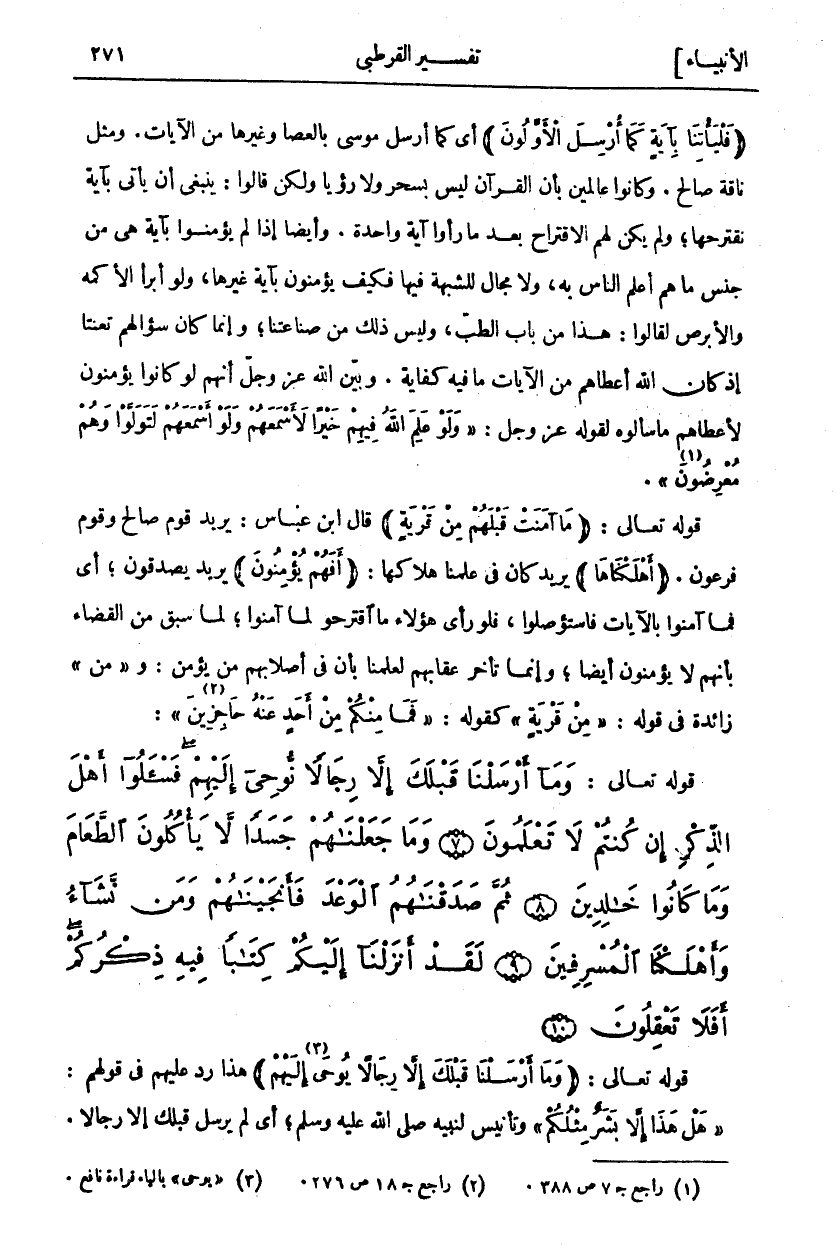 الأنبياء] تفسير القرطبى ٢٧١
﴿فَلْيَأْتِنَا بِآيَةٍ كَمَا أُرْسِلَ الْأَوَّلُونَ﴾ أى كما أرسل موسى بالعصا وغيرها من الآيات. ومثل
ناقة صالح. وكانوا عالمين بأن القرآن ليس بسحر ولا رؤيا ولكن قالوا: ينبغى أن يأتى بآية
نقترحها؛ ولم يكن لهم الاقتراح بعد ما رأوا آية واحدة. وأيضا إذا لم يؤمنوا بآية هى من
جنس ما هم أعلم الناس به، ولا مجال للشبهة فيها فكيف يؤمنون بآية غيرها، ولو أبرأ الأكمه
والأبرص لقالوا: هذا من باب الطبّ، وليس ذلك من صناعتنا؛ وإنما كان سؤالهم تعنتا
إذ كان الله أعطاهم من الآيات ما فيه كفاية. وبيّن الله عز وجلّ أنهم لو كانوا يؤمنون
لأعطاهم ما سألوه لقوله عز وجل: «وَلَوْ عَلِمَ اللَّهُ فِيهِمْ خَيْرًا لَأَسْمَعَهُمْ وَلَوْ أَسْمَعَهُمْ لَتَوَلَّوْا وَهُمْ
مُعْرِضُونَ(١)».
قوله تعالى: ﴿مَا آمَنَتْ قَبْلَهُمْ مِنْ قَرْيَةٍ﴾ قال ابن عباس: يريد قوم صالح وقوم
فرعون. ﴿أَهْلَكْنَاهَا﴾ يريد كان فى علمنا هلاكها: ﴿أَفَهُمْ يُؤْمِنُونَ﴾ يريد يصدقون؛ أى
فما آمنوا بالآيات فاستؤصلوا، فلو رأى هؤلاء ما آقترحو لما آمنوا؛ لما سبق من القضاء
بأنهم لا يؤمنون أيضا؛ وإنما تأخر عقابهم لعلمنا بأن فى أصلابهم من يؤمن: و«من»
زائدة فى قوله: «مِنْ قَرْيَةٍ» كقوله: «فَمَا مِنْكُمْ مِنْ أَحَدٍ عَنْهُ حَاجِزِينَ(٢)»:
قوله تعالى: وَمَآ أَرْسَلْنَا قَبْلَكَ إِلَّا رِجَالًا نُّوحِىٓ إِلَيْهِمْ ۖ فَسْـَٔلُوٓا۟ أَهْلَ
الذِّكْرِ إِن كُنتُمْ لَا تَعْلَمُونَ ٧ وَمَا جَعَلْنَـٰهُمْ جَسَدًا لَّا يَأْكُلُونَ ٱلطَّعَامَ
وَمَا كَانُوا خَـٰلِدِينَ ٨ ثُمَّ صَدَقْنَـٰهُمُ ٱلْوَعْدَ فَأَنجَيْنَـٰهُمْ وَمَن نَّشَآءُ
وَأَهْلَكْنَا ٱلْمُسْرِفِينَ ٩ لَقَدْ أَنزَلْنَآ إِلَيْكُمْ كِتَـٰبًا فِيهِ ذِكْرُكُمْ ۖ
أَفَلَا تَعْقِلُونَ ١٠
قوله تعالى: ﴿وَمَا أَرْسَلْنَا قَبْلَكَ إِلَّا رِجَالًا يُوحَى(٣) إِلَيْهِمْ﴾ هذا رد عليهم فى قولهم:
«هَلْ هَذَا إِلَّا بَشَرٌ مِثْلُكُمْ» وتأنيس لنبيه صلى الله عليه وسلم؛ أى لم يرسل قبلك إلا رجالا.
(١) راجع جـ ٧ ص ٣٨٨. (٢) راجع جـ ١٨ ص ٢٧٦. (٣) «يوحى» بالياء قراءة نافع.